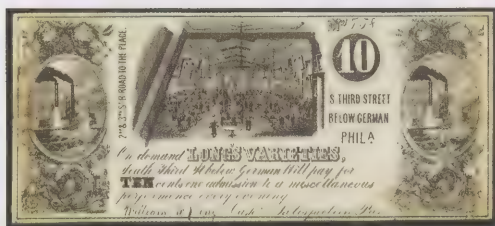 2nd & 3rd St. R. ROAD TO THE PLACE.
10
S THIRD STREET
BELOW GERMAN
PHILA
On demand LONG'S VARIETIES,
South Third St below German Will pay for
TEN cents one admission to a miscellaneous
performance every evening
William